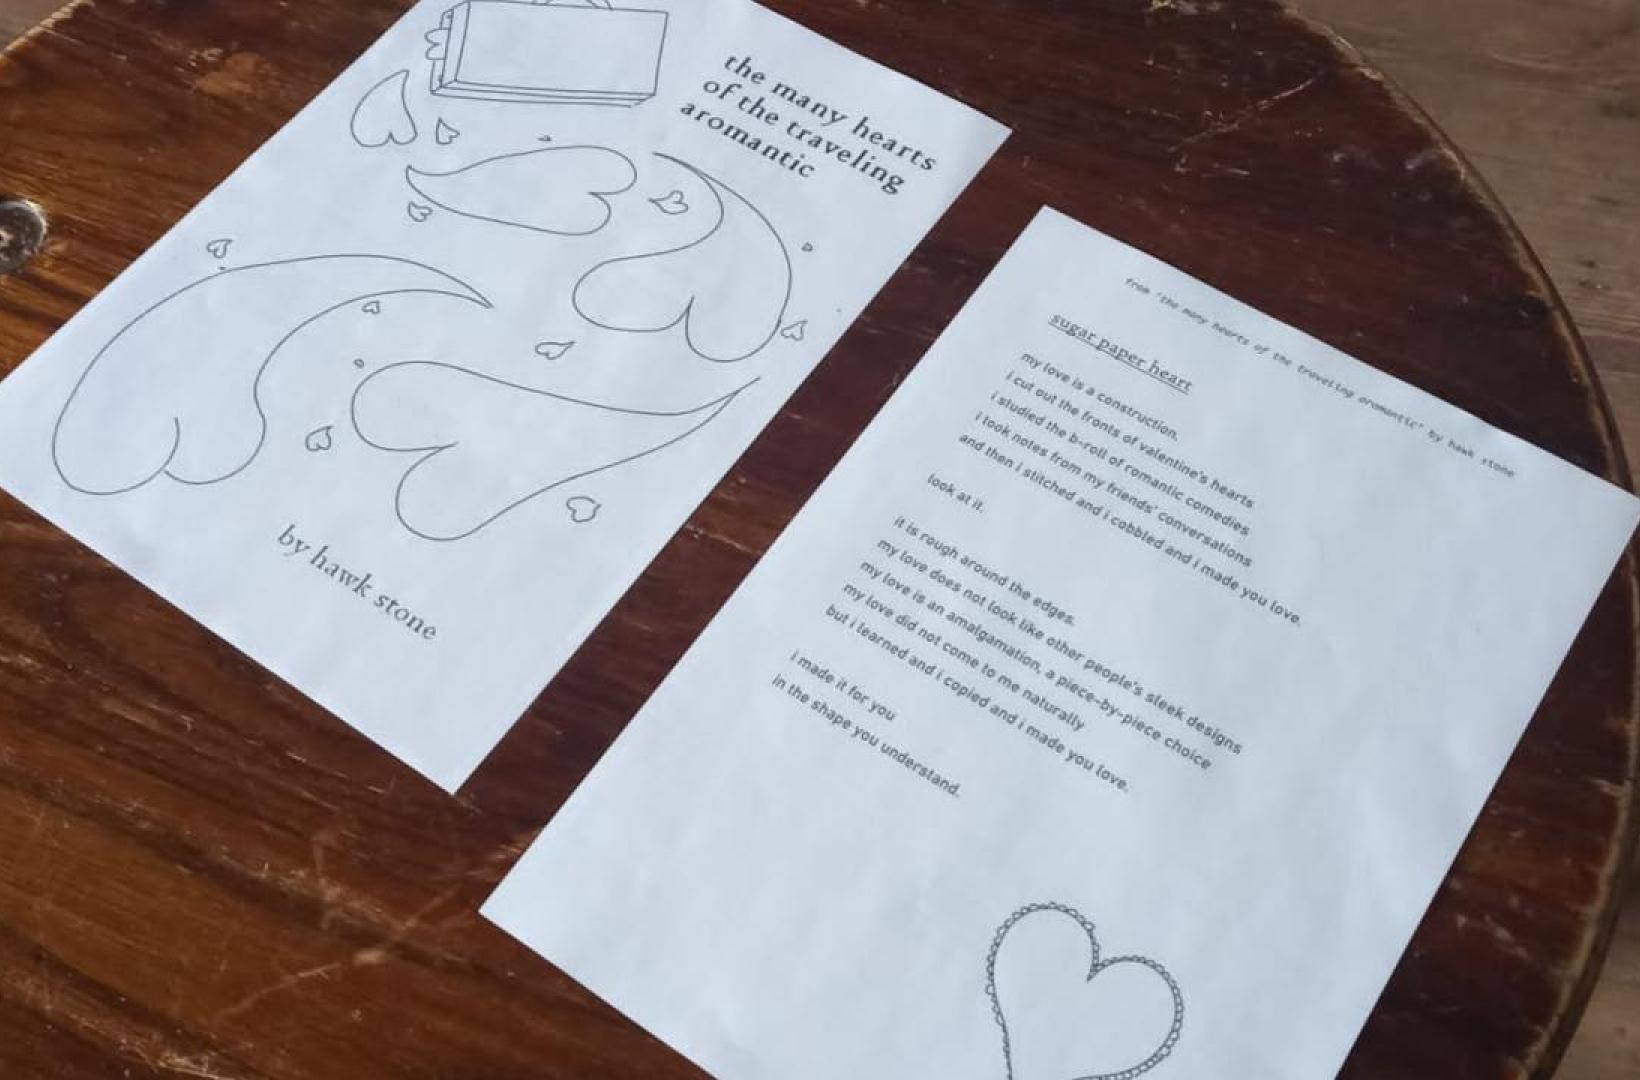 the many hearts
of the traveling
aromantic
by hawk stone
from "the many hearts of the traveling aromantic" by hawk stone
sugar paper heart
my love is a construction.
i cut out the fronts of valentine's hearts
i studied the b-roll of romantic comedies
i took notes from my friends' conversations
and then i stitched and i cobbled and i made you love.
look at it.
it is rough around the edges.
my love does not look like other people's sleek designs
my love is an amalgamation, a piece-by-piece choice
my love did not come to me naturally
but i learned and i copied and i made you love.
i made it for you
in the shape you understand.